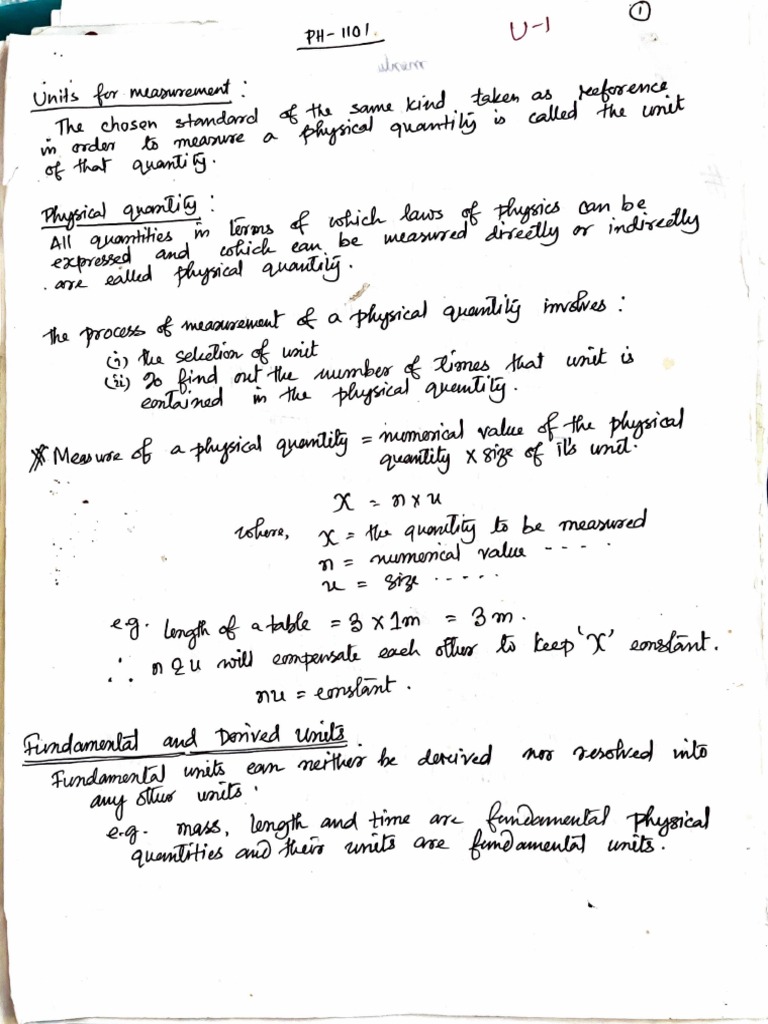 ①
PH-1101.
U-1
Units for measurement :
The chosen standard of the same kind taken as reeference
in order to measure a physical quantity is called the unit
of that quantity.
Physical quantity :
All quantities in terms of which laws of physics can be
expressed and which can be measured directly or indirectly
are called physical quantity.
the process of measurement of a physical quantity involves :
(i) the selection of unit
(ii) To find out the number of times that unit is
contained in the physical quantity.
* Measure of a physical quantity = numerical value of the physical
quantity × size of it's unit.
x = n × u
where, x = the quantity to be measured
n = numerical value ----
u = size -----
e.g. length of a table = 3 × 1m = 3m.
∴ n & u will compensate each other to keep 'x' constant.
nu = constant.
Fundamental and Derived Units
Fundamental units can neither be derived nor resolved into
any other units.
e.g. mass, length and time are fundamental physical
quantities and their units are fundamental units.